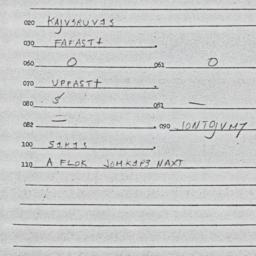 020 KAJVSRUVIS
030 FAFAST+
060 0 061 0
070 UPPAST+
080 081 —
082 = 090 IONTOJVM7
100
110 A FLOK JOMKIPS NAXT